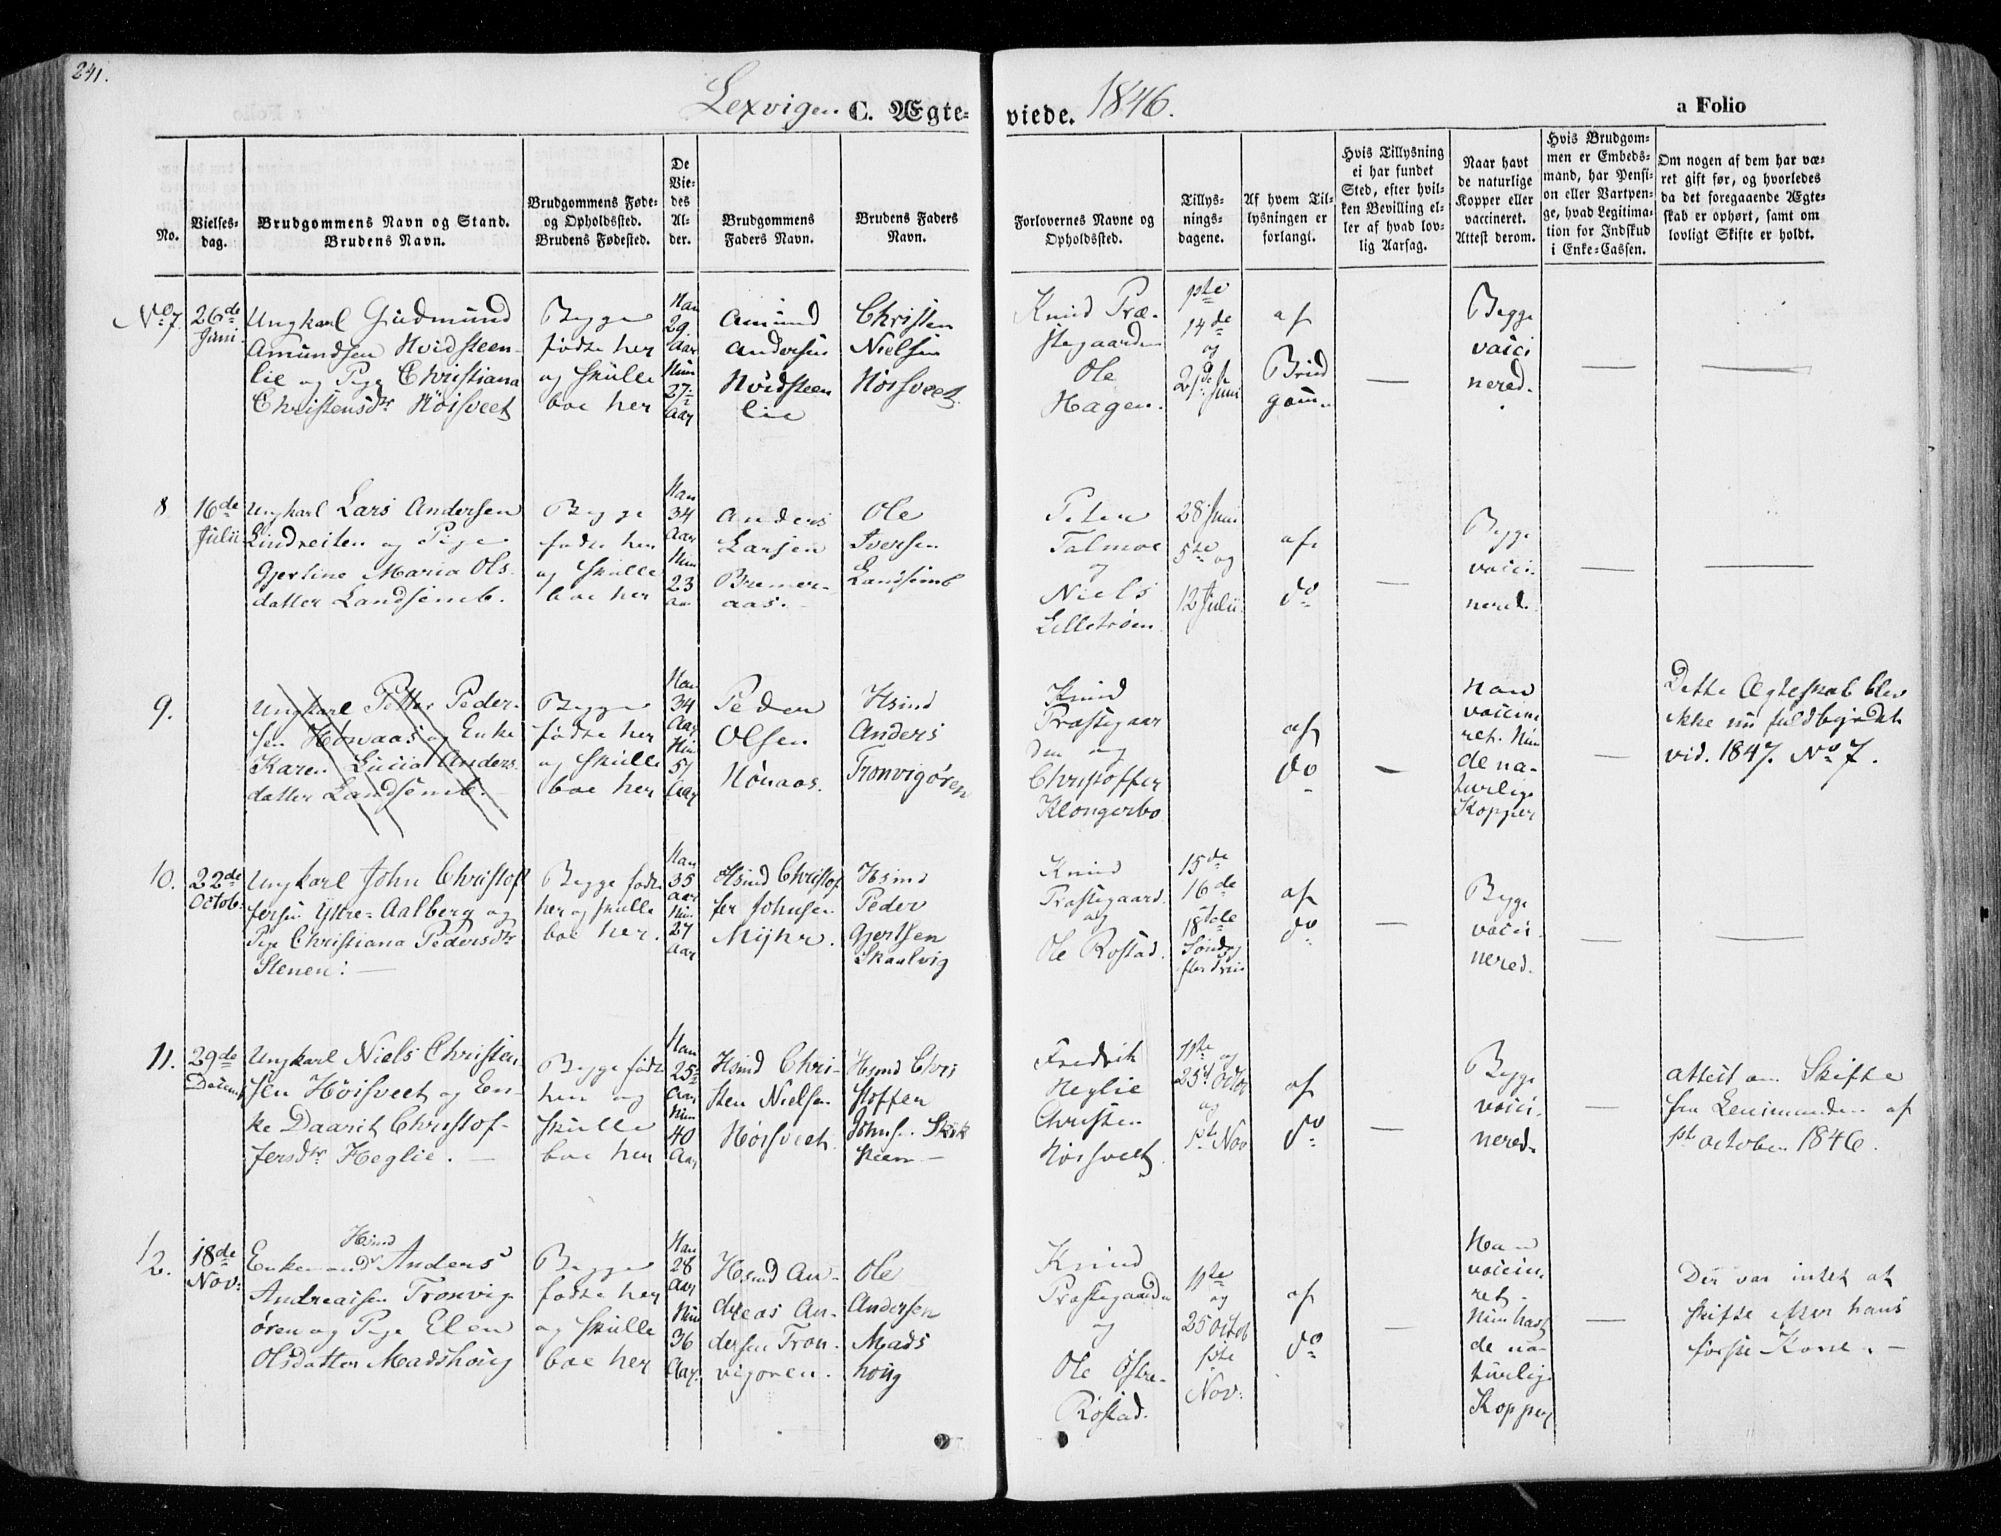 241.
Lexvigen C. Ægte-
viede. 1846.
a Folio
No.
Vielses-
dag.
Brudgommens Navn og Stand.
Brudens Navn.
Brudgommens Føde-
og Opholdssted.
Brudens Fødested.
De
Vie-
des
Al-
der.
Brudgommens
Faders Navn.
Brudens Faders
Navn.
Forlovernes Navne og
Opholdssted.
Tillys-
nings-
dagene.
Af hvem Til-
lysningen er
forlangt.
Hvis Tillysning
ei har fundet
Sted, efter hvil-
ken Bevilling el-
ler af hvad lov-
lig Aarsag.
Naar havt
de naturlige
Kopper eller
vaccineret.
Attest derom.
Hvis Brudgom-
men er Embeds-
mand, har Pensi-
on eller Vartpen-
ge, hvad Legitima-
tion for Indskud
i Enke-Cassen.
Om nogen af dem har væ-
ret gift før, og hvorledes
da det foregaaende Ægte-
skab er ophørt, samt om
lovligt Skifte er holdt.
No 7.
26de
Juni
Ungkarl Gudmund
Amundsen Hvidsteen-
lie og Pige Christiana
Christensdr Høisveet
Begge
fødte her
og skulle
boe her
Han
29
Aar
Hun
27½
Aar
Amund
Andersen
Hvidsteen
lie
Christen
Nielsen
Høisveet
Knud Præ-
stegaarden
Ole
Hagen.
1ste
14de
og
21de Juni
af
Brud
gom.
—
Begge
vacci
nered.
—
—
8
16de
Julii
Ungkarl Lars Andersen
Lindreiten og Pige
Gjertine Maria Ols-
datter Landsemb.
Begge
fødte her
og skulle
boe her
Han
34
Aar
Hun
23
Aar
Anders
Larsen
Bremer-
aas.
Ole
Iversen
Landsemb
Peter
Talmoe
og
Niels
Lillestrøm
28 Juni
5te og
12 Julii
af
do
—
Begge
vacci-
nered.
—
—
9.
Ungkarl Petter Peder-
sen Hovaas og Enke
Karen Lucia Anders-
datter Landsemb.
Begge
fødte her
og skulle
boe her
Han
34
Aar
Hun
51
Aar
Peder
Olsen
Hovaas
Hsmd
Anders
Tronvigøren
Knud
Præstegaar
den og
Christoffer
Klongerbo
af
do
—
Han
vaccine
ret. Hun
de na-
turlige
Kopper
—
Dette Ægteskab blev
ikke nu fuldbyrdet
vid. 1847. No 7.
10.
22de
October
Ungkarl John Christof
fersen Ytre-Aalberg og
Pige Christiana Pedersdr
Stenen: —
Begge fødte
her og skulle
boe her.
Han
35
Aar
Hun
27
Aar
Hsmd Christof
fer Johnsen
Myhr.
Hsmd
Peder
Gjertsen
Skaalvig
Knud
Præstegaard.
og
Ole Rostad.
15de
16de
18de
Søndag
efter Trin
af
do
—
Begge
vacci-
nered.
—
—
11.
29de
Decemb
Ungkarl Niels Christen
sen Høisveet og En-
ke Daarit Christof-
fersdr Heglie. —
Begge fødte
her og
skulle
boe her
Han
25½
Aar
Hun
40
Aar
Hsmd Chri-
sten Nielsen
Høisveet.
Hsmd Chri
stoffer
Johnsen
Knut
Fredrik
Heglie
Christen
Høisveet
11te og
25d Octob
og
1st Nov
af
do
—
Begge
vacci-
nered.
—
Attest om Skifte
fra Lensmanden af
1st October 1846.
12.
18de
Nov:
Hsmd
Enkemand Anders
Andreassen Tronvig
øren og Pige Elen
Olsdatter Madshoug
Begge
fødte her
og skulle
boe her
Han
28
Aar
Hun
36
Aar.
Hsmd An-
dreas An-
dersen Tron-
vigøren.
Ole
Andersen
Mads
houg
Knud
Præstegaarden
og
Ole Østre-
Røstad.
11te
og
25 Octob
1ste
Nov:
af
do
—
Han
vaccine
ret.
Hun havt
de na-
turlige
Kopper
—
Der var intet at
skifte efter hans
første Kone. —